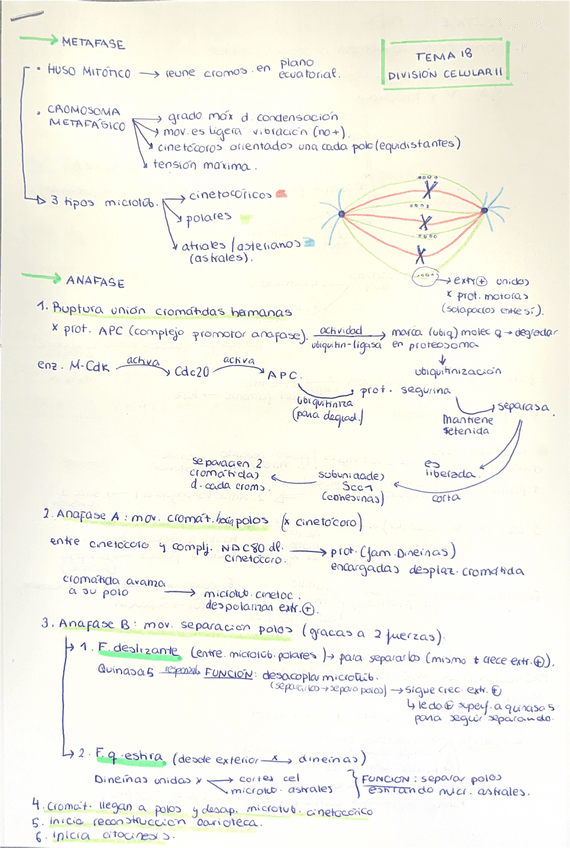 → METAFASE
TEMA 18
DIVISIÓN CELULAR II
· HUSO MITÓTICO → reune cromos. en plano ecuatorial.
· CROMOSOMA METAFÁSICO
→ grado máx d. condensación
→ mov. es ligera vibración (no+).
→ cinetócoros orientados una cada polo (equidistantes)
→ tensión máxima.
→ 3 tipos microtúb.
→ cinetocóricos
→ polares
→ astrales/asterianos (astrales).
→ extr⊕ unidos
x prot. motoras
(solapados entre sí).
→ ANAFASE
1. Ruptura unión cromátidas hermanas
x prot. APC (complejo promotor anafase). actividad ubiquitin-ligasa → marca (ubiq) molec q → degradar en proteosoma
↓ ubiquitinización
enz. M-Cdk activa → Cdc20 activa → APC.
ubiquitiniza (para degrad.) → prot. segurina
Mantiene retenida → separasa.
es liberada.
corta
subunidades Scc1 (cohesinas)
separación 2 cromátidas d. cada croms.
2. Anafase A: mov. cromát. hacia polos (x cinetócoro)
entre cinetócoro y complj. NDC80 dl. cinetócoro. → prot. (fam. Dineínas) encargadas desplaz. cromátida
cromátida avanza a su polo → microtúb. cinetoc. despolarizan extr.⊕.
3. Anafase B: mov. separación polos (gracias a 2 fuerzas).
→ 1. F. deslizante (entre microtúb. polares) → para separarlos (mismo t crece extr.⊕).
Quinasa 5 FUNCIÓN: desacoplar microtúb.
(separarlos → separa polos) → sigue crec. extr.⊕
↳ superf. a quinasa 5
para seguir separando.
→ 2. F. q. estira (desde exterior x → dineínas)
Dineínas unidas x
→ cortex cel
→ microtúb. astrales
FUNCIÓN: separar polos estirando mict. astrales.
4. Cromát. llegan a polos y desap. microtúb. cinetocórico
5. Inicia reconstrucción carioteca.
6. Inicia citocinesis.